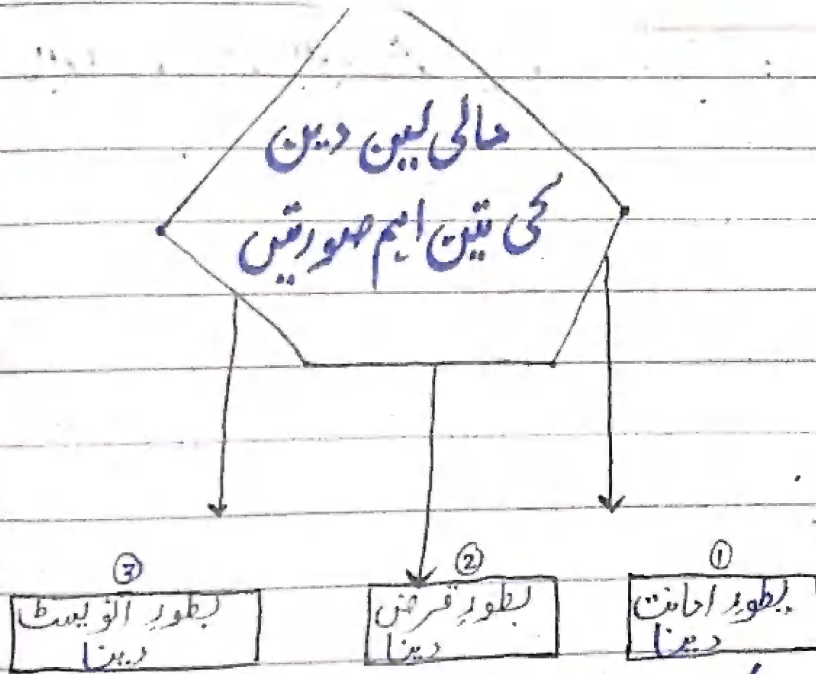 مالی لین دین
کی تین اہم صورتیں
①
بطورِ امانت
دینا
②
بطورِ قرض
دینا
③
بطورِ انویسٹ
دینا